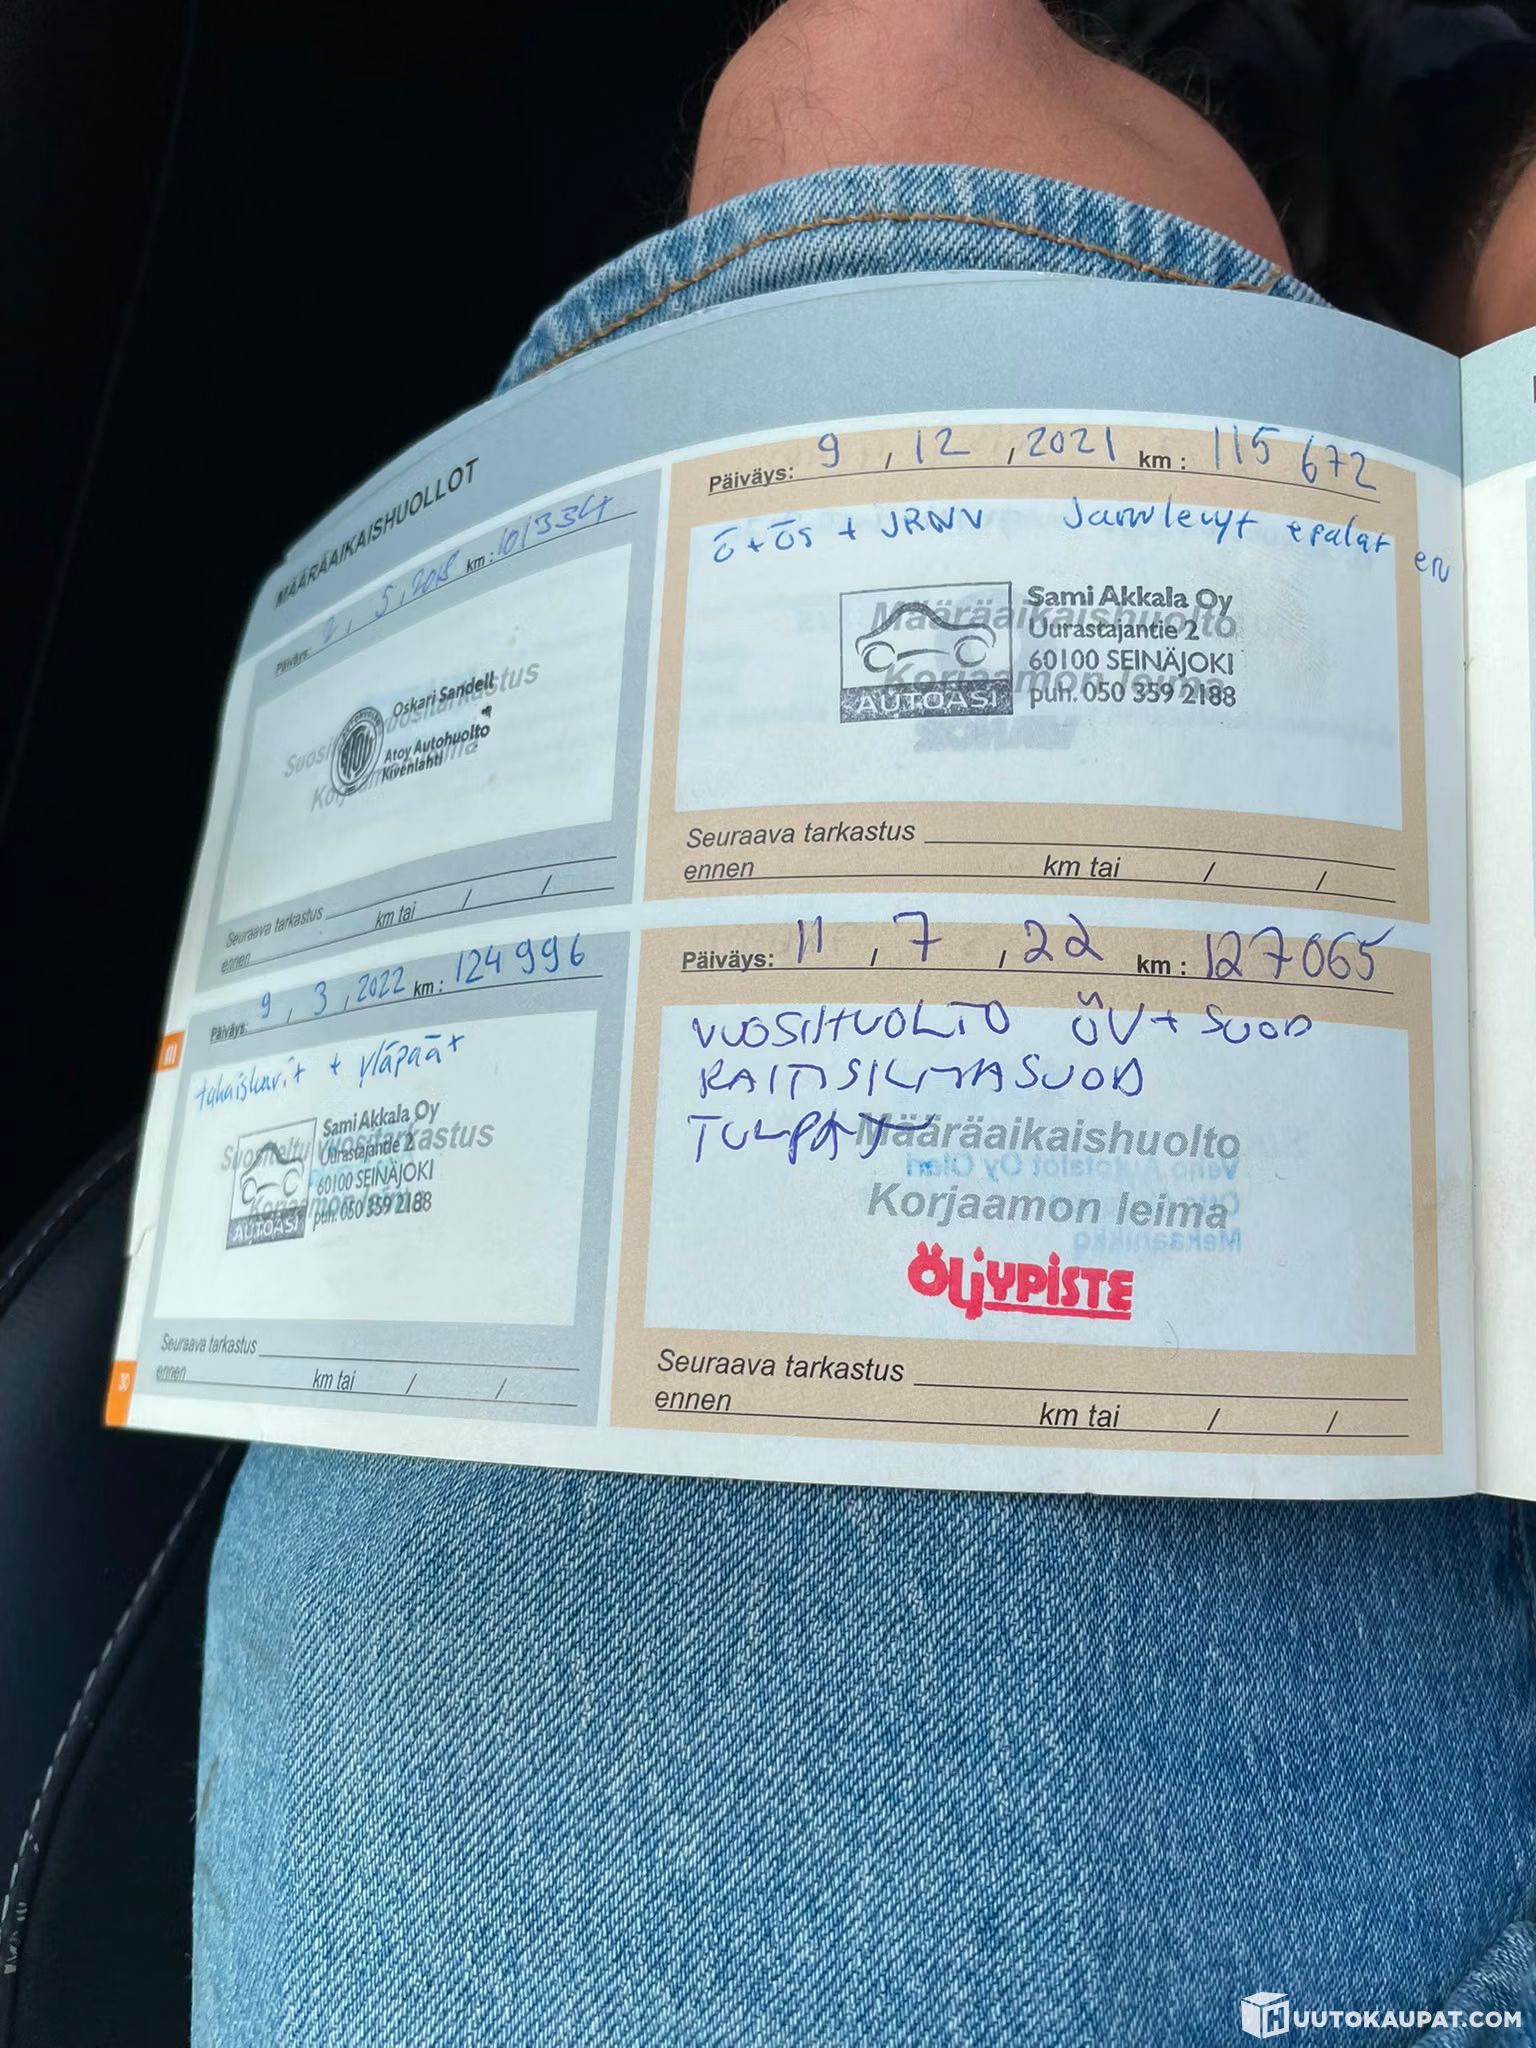 MÄÄRÄAIKAISHUOLLOT
Päiväys: 2, 5, 2018 km: 101334
Suositeltu vuositarkastus
Korjaamon leima
Oskari Sandell
ATOY
Atoy Autohuolto
Kivenlahti
Seuraava tarkastus
ennen km tai / /
Päiväys: 9, 12, 2021 km: 115 672
ö + ös + JRNV Jarrulevyt + palat en
Määräaikaishuolto
Korjaamon leima
Sami Akkala Oy
Uurastajantie 2
60100 SEINÄJOKI
puh. 050 359 2188
AUTOASI
Seuraava tarkastus
ennen km tai / /
Päiväys: 9, 3, 2022 km: 124 996
takaiskarit + yläpäät
Suositeltu vuositarkastus
Korjaamon leima
Sami Akkala Oy
Uurastajantie 2
60100 SEINÄJOKI
puh. 050 359 2188
AUTOASI
Seuraava tarkastus
ennen km tai / /
Päiväys: 11, 7, 22 km: 127065
VUOSIHUOLTO ÖV + SUOD
RAITISILMASUOD
TULPAT
Määräaikaishuolto
Korjaamon leima
ÖLJYPISTE
Seuraava tarkastus
ennen km tai / /
30
HUUTOKAUPAT.COM